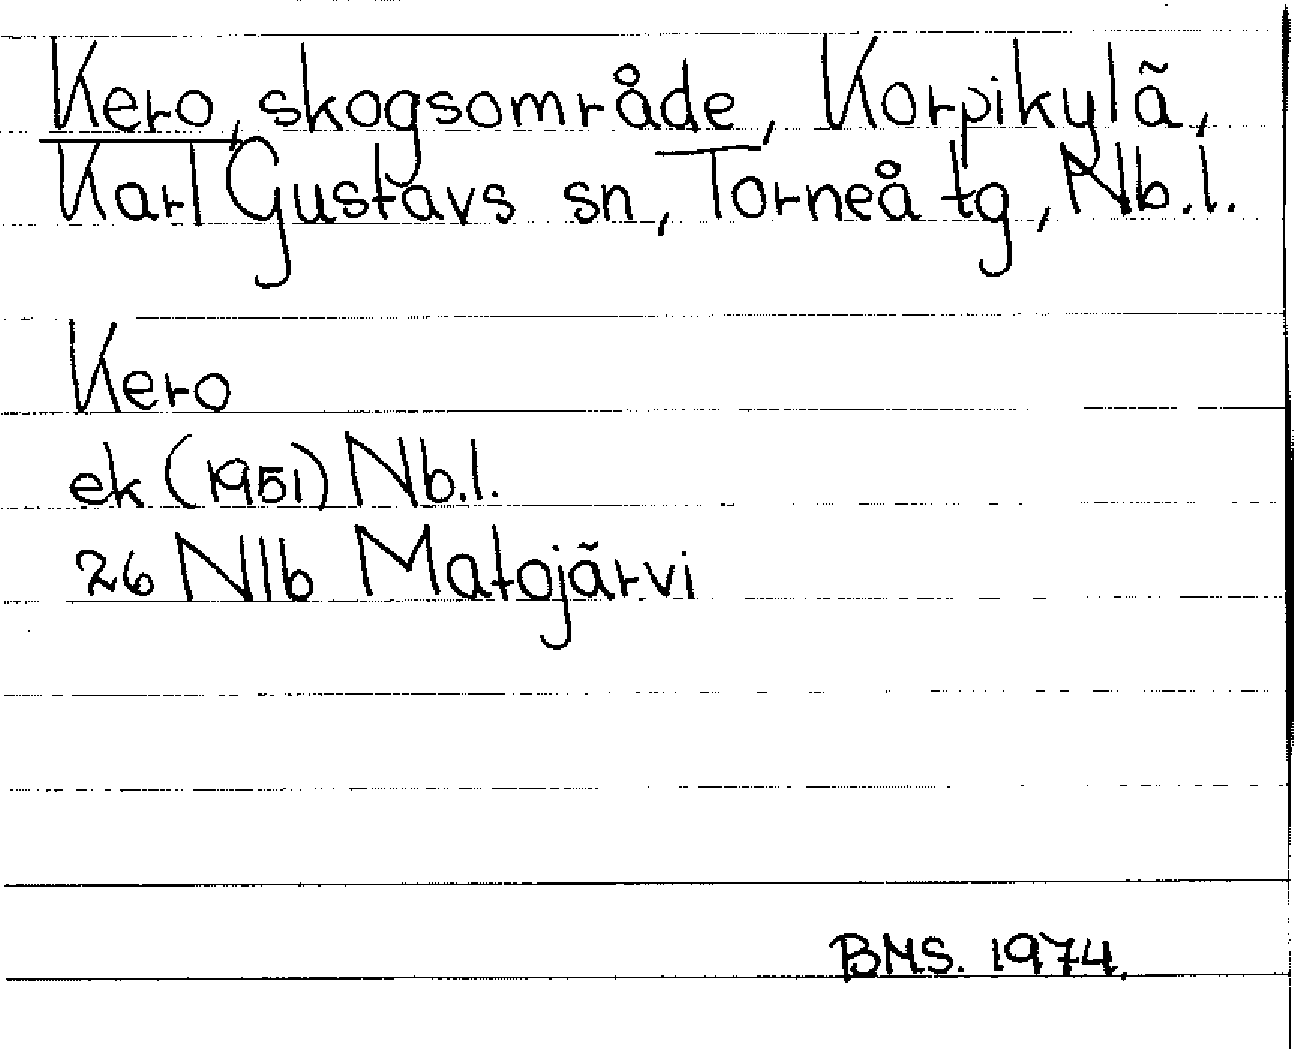 Kero, skogsområde, Korpikylä,
Karl Gustavs sn, Torneå tg, Nb.l.
Kero
ek (1951) Nb.l.
26 Nlb Matojärvi
BMS. 1974.